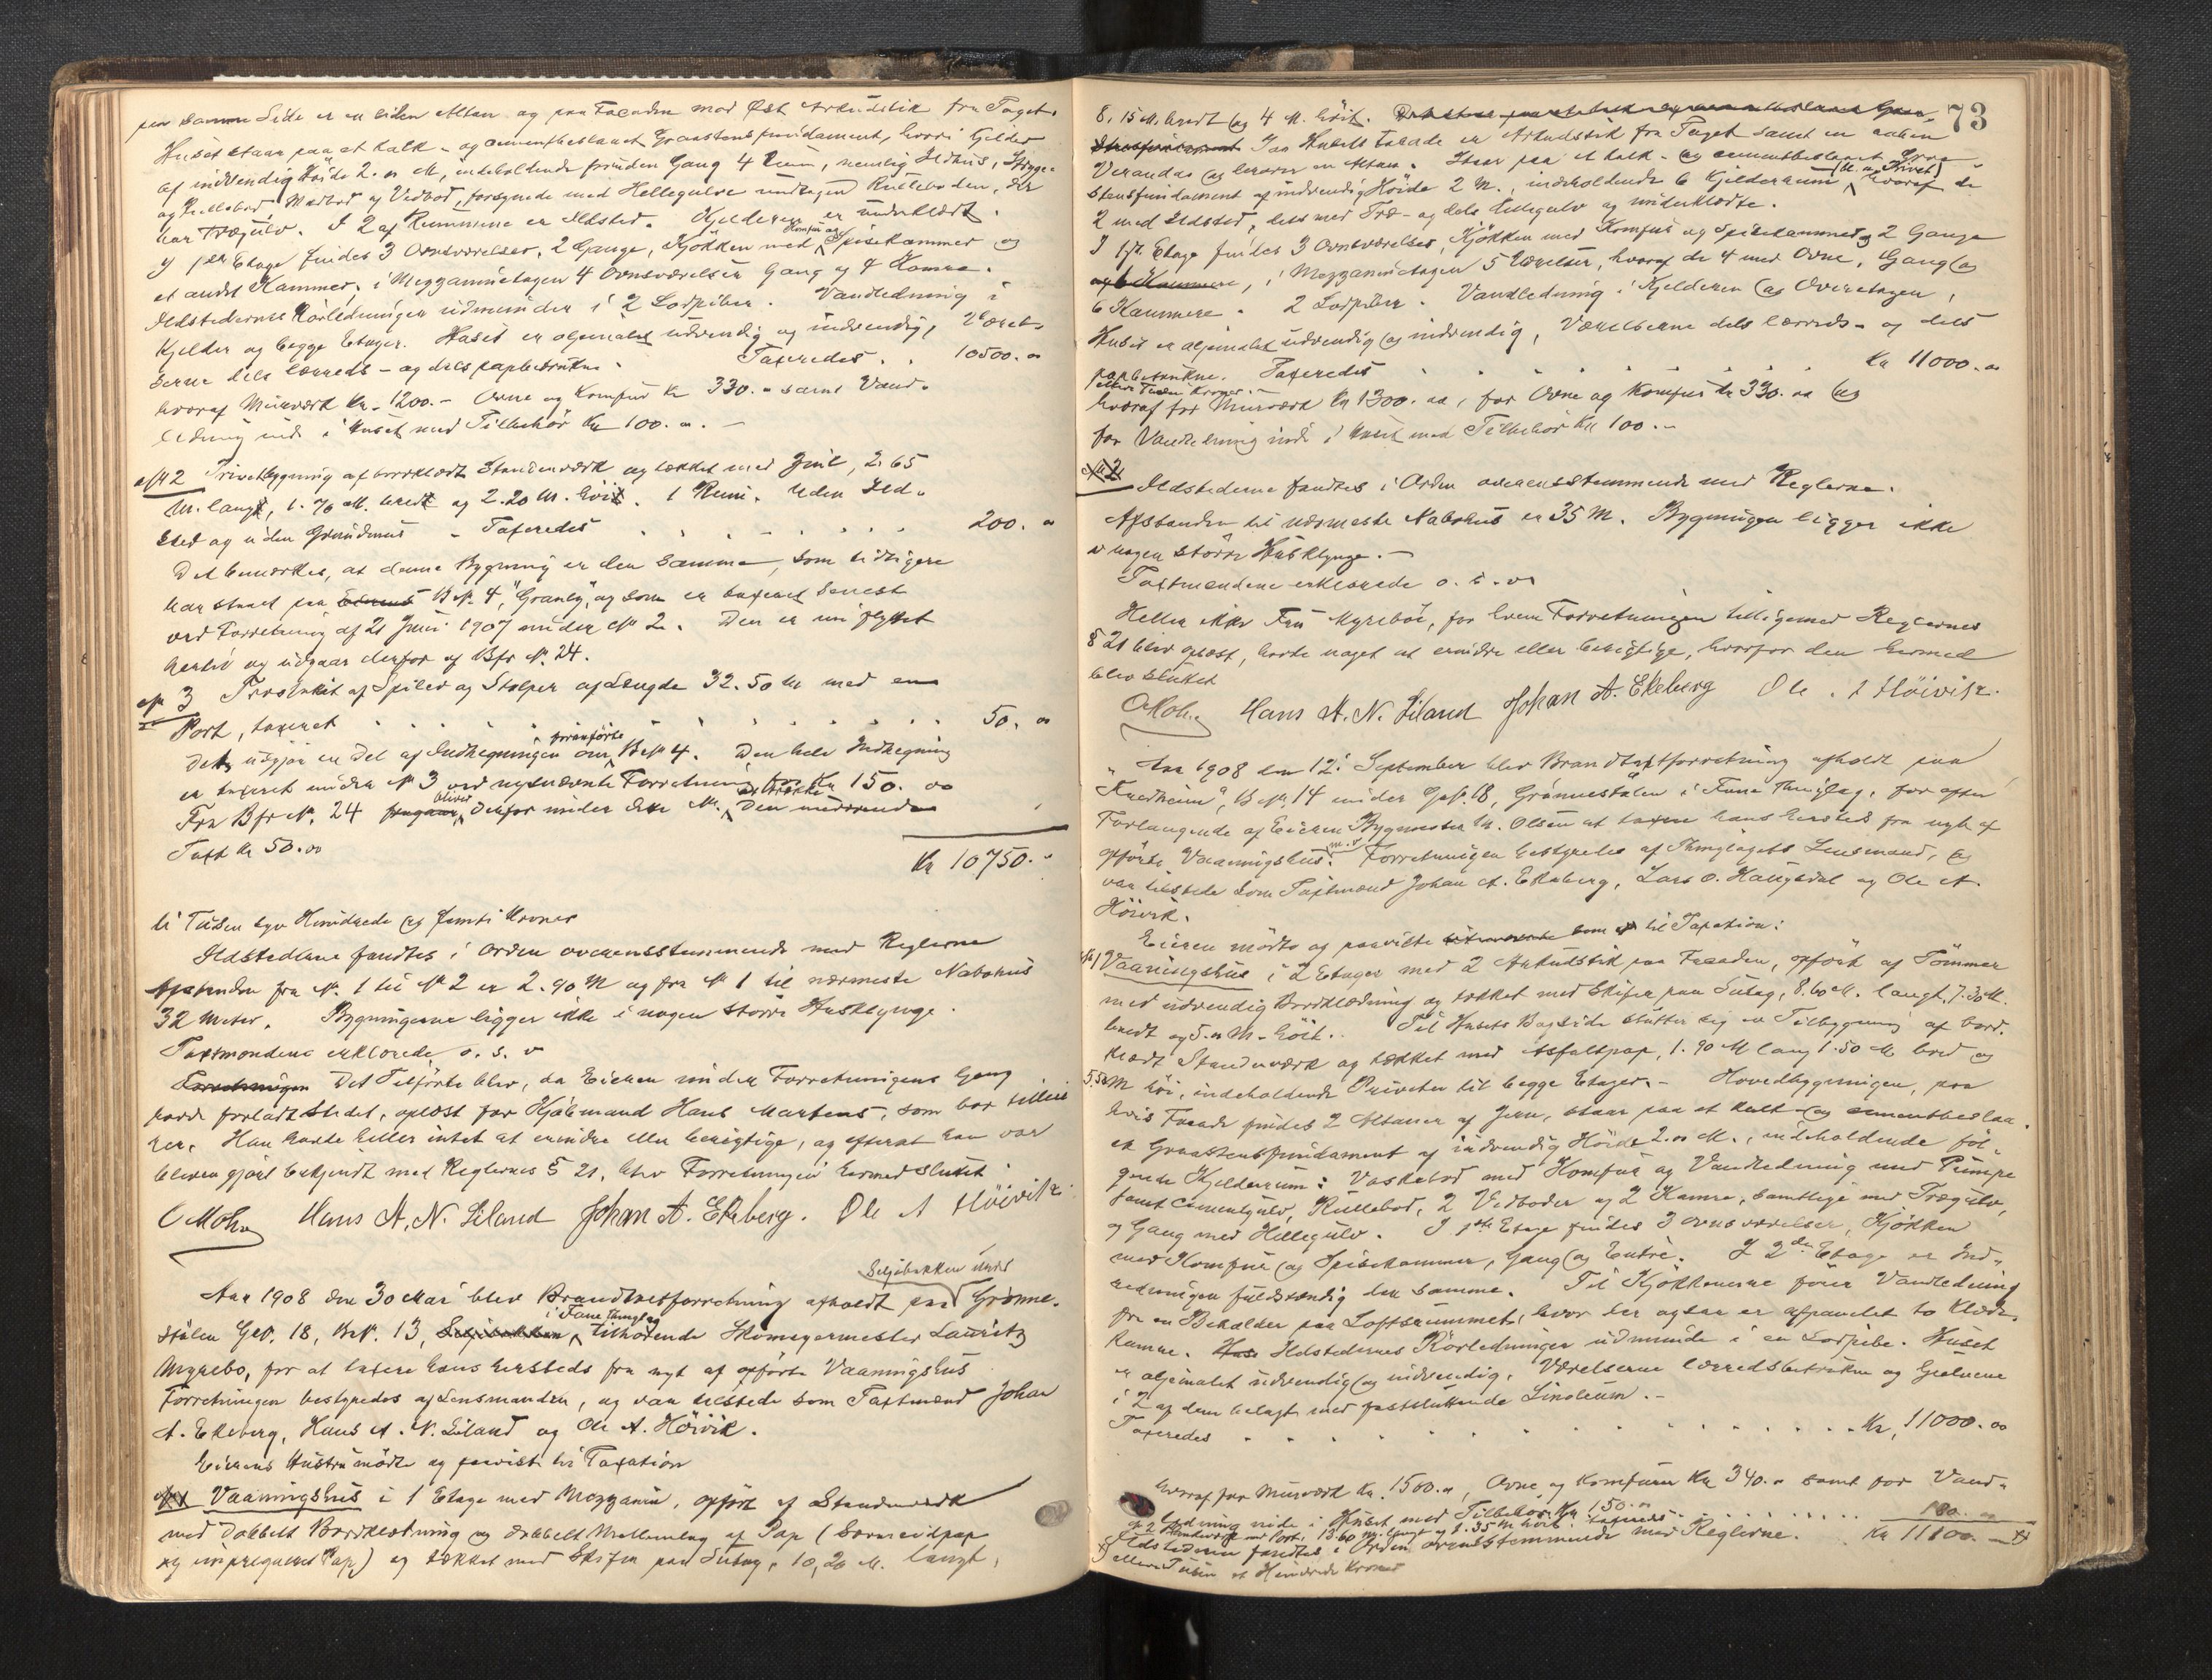 paa samme Side er en liden Altan og paa Facaden mod Øst Arkudstik fra Taget.
Huset staar paa et kalk- og cementbeslaaet Graastensfundament, hvori Kjelder
af indvendig Høide 2.00 M, indeholdende foruden Gang 4 Rum, nemlig Ildhus, Stryge-
og Rullebod, Madbod og Vedbod, forsynede med Hellegulve undtagen Rulleboden, der
har Trægulv. I 2 af Rummene er Ildsted. Kjelderen er underklædt.
I 1ste Etage findes 3 Ovnsværelser, 2 Gange, Kjøkken med Komfur og Spisekammer og
et andet Kammer, i Mezzaninetagen 4 Ovnsværelser Gang og 4 Kamre.
Ildstedernes Rørledninger udmunder i 2 Lodpiber. Vandledning i
Kjelder og begge Etager. Huset er oljemalet udvendig og indvendig, Værel-
serne dels lærreds- og dels papbetrukne. Taxeredes . . 10500.00
hvoraf Murværk Kr. 1200.- Ovne og Komfur Kr 330.00 samt Vand-
ledning inde i Huset med Tilbehør Kr 100.00. -
No 2 Privetbygning af bordklædt Stenderværk og tækket med Zink, 2.65
M. langt, 1.70 M. bredt og 2.20 M. høit. 1 Rum. Uden Ild-
sted og uden Grundmur - Taxeredes . . . . . . 200.00
Det bemærkes, at denne Bygning er den samme, som tidligere
har staaet paa B.No. 4, "Granly", og som er taxeret senest
ved Forretning af 21 Juni 1907 under No 2. Den er nu flyttet
hertil og udgaar derfor af Bfr No. 24.
No 3 Træstakit af Spiler og Stolper af Længde 32.50 M med en
Port, taxeret . . . . . . . . . . 50.00
Dette udgjør en Del af Indhegningen om foranførte B.No 4. Den hele Indhegning
er taxeret under No 3 ved nysnævnte Forretning for Kr 150.00
Fra Bfr No. 24 bliver derfor under dette No. at trække den nuværende
Taxt Kr 50.00
Kr 10750.-
ti Tusen syv Hundrede og femti Kroner
Ildstederne fandtes i Orden overensstemmende med Reglerne
Afstanden fra No. 1 til No 2 er 2.90 M og fra No 1 til nærmeste Nabohus
32 Meter. Bygningerne ligger ikke i nogen større Husklynge.
Taxtmændene erklærede o. s. v
Forretningen Det Tilførte blev, da Eieren under Forretningens Gang
havde forladt Stedet, oplæst for Kjøbmand Hans Martens, som bor tilleie
her. Han havde heller intet at erindre eller berigtige, og efterat han var
bleven gjort bekjendt med Reglernes § 21, blev Forretningen hermed sluttet.
O Mohn Hans A. N. Liland Johan A. Ekeberg. Ole A Høivik
Aar 1908 den 30 Mai blev Brandtaxtforretning afholdt paa Seljebakken under Grønne-
stølen G.No. 18, B.No. 13, Seljebakken i Fane Thinglag tilhørende Skomagermester Lauritz
Myrebø, for at taxere hans hersteds fra nyt af opførte Vaaningshus
Forretningen bestyredes af Lensmanden, og var tilstede som Taxtmænd Johan
A. Ekeberg, Hans A. N. Liland og Ole A. Høivik.
Eierens Hustru mødte og paaviste til Taxation
No 1 Vaaningshus i 1 Etage med Mezzanin, opført af Stenderværk
med dobbelt Bordklædning og dobbelt Mellemlag af Pap (
og impregneret Pap) og tækket med Skifer paa Sutag, 10,20 M. langt,
73
8.15 M. bredt og 4 M. høit.
Paa Husets Facade er Arkudstik fra Taget samt en aaben
Veranda og derover en Altan. Staar paa et kalk- og cementbeslaaet Graa-
stensfundament af indvendig Høide 2 M., indeholdende 6 Kjelderrum (bl. a. Privet) hvoraf de
2 med Ildsted, dels med Træ- og dels Hellegulv og underklædte.
I 1ste Etage findes 3 Ovnsværelser, Kjøkken med Komfur og Spisekammer og 2 Gange
og 6 Kammere, i Mezzaninetagen 5 Værelser, hvoraf de 4 med Ovne, Gang og
6 Kammere. 2 Lodpiber. Vandledning i Kjelderen og Overetagen.
Huset er oljemalet udvendig og indvendig, Værelserne dels lærreds- og dels
papbetrukne. Taxeredes . . . . . . . Kr 11000.00
elleve Tusen Kroner.
hvoraf for Murværk Kr 1300.00, for Ovne og Komfur Kr 330.00 og
for Vandledning inde i Huset med Tilbehør Kr 100.-
No 2
Ildstederne fandtes i Orden overensstemmende med Reglerne.
Afstanden til nærmeste Nabohus er 35 M. Bygningen ligger ikke
i nogen større Husklynge. -
Taxtmændene erklærede o. s. v
Heller ikke Fru Myrebø, for hvem Forretningen tilligemed Reglernes
§ 21 blev oplæst, havde noget at erindre eller berigtige, hvorfor den hermed
blev sluttet
O Mohn Hans A. N. Liland Johan A. Ekeberg Ole A Høivik.
Aar 1908 den 12. September blev Brandtaxtforretning afholdt paa
"Fredheim", B.No. 14 under G.No. 18, Grønnestølen i Fane Thinglag, for efter
Forlangende af Eieren Bygmester M. Olsen at taxere hans hersteds fra nyt af
opførte Vaaningshus m. v. Forretningen bestyredes af Thinglagets Lensmand, og
var tilstede som Taxtmænd Johan A. Ekeberg, Lars O. Haugsdal og Ole A.
Høivik.
Eieren mødte og paaviste som til Taxation:
No 1 Vaaningshus i 2 Etager med 2 Arkudstik paa Facaden, opført af Tømmer
med udvendig Bordklædning og tækket med Skifer paa Sutag, 8.60 M. langt, 7.30 M.
bredt og 5.00 M. høit. Til Husets Bagside støtter sig en Tilbygning af bord-
klædt Stenderværk og tækket med Asfaltpap, 1.90 M lang 1.50 M bred og
5.50 M høi, indeholdende Priveter til begge Etager. - Hovedbygningen, paa
hvis Facade findes 2 Altaner af Jern, staar paa et kalk- og cementbeslaa-
et Graastensfundament af indvendig Høide 2.00 M., indeholdende føl-
gende Kjelderrum: Vaskebod med Komfur og Vandledning med Pumpe
samt Cementgulv, Rullebod, 2 Vedboder og 2 Kamre, samtlige med Trægulv,
og Gang med Hellegulv. I 1ste Etage findes 3 Ovnsværelser, Kjøkken
med Komfur og Spisekammer, Gang og Entre. I 2den Etage er Ind-
redningen fuldstændig den samme. Til Kjøkkenerne fører Vandledning
fra en Beholder paa Loftsrummet, hvor der ogsaa er afpanelet to Klæde-
kamre. Huse Ildstedernes Rørledninger udmunde i en Lodpibe. Huset
er oljemalet udvendig og indvendig, Værelserne lærredsbetrukne og Gulvene
i 2 af dem belagt med fastsluttende Linoleum. -
Taxeredes . . . . . . . . . . . Kr. 11000.00
hvoraf for Murværk Kr. 1500.00, Ovne og Komfurer Kr 340.00 samt for Vand-
ledning inde i Huset med Tilbehør Kr 150.00
No 2 med Port, 13.60 M. langt og 1.35 M høit. taxeres . . . . . . 100.00
Ildstederne fandtes i Orden overensstemmende med Reglerne. Kr 11100.00
elleve Tusen et Hundrede Kroner